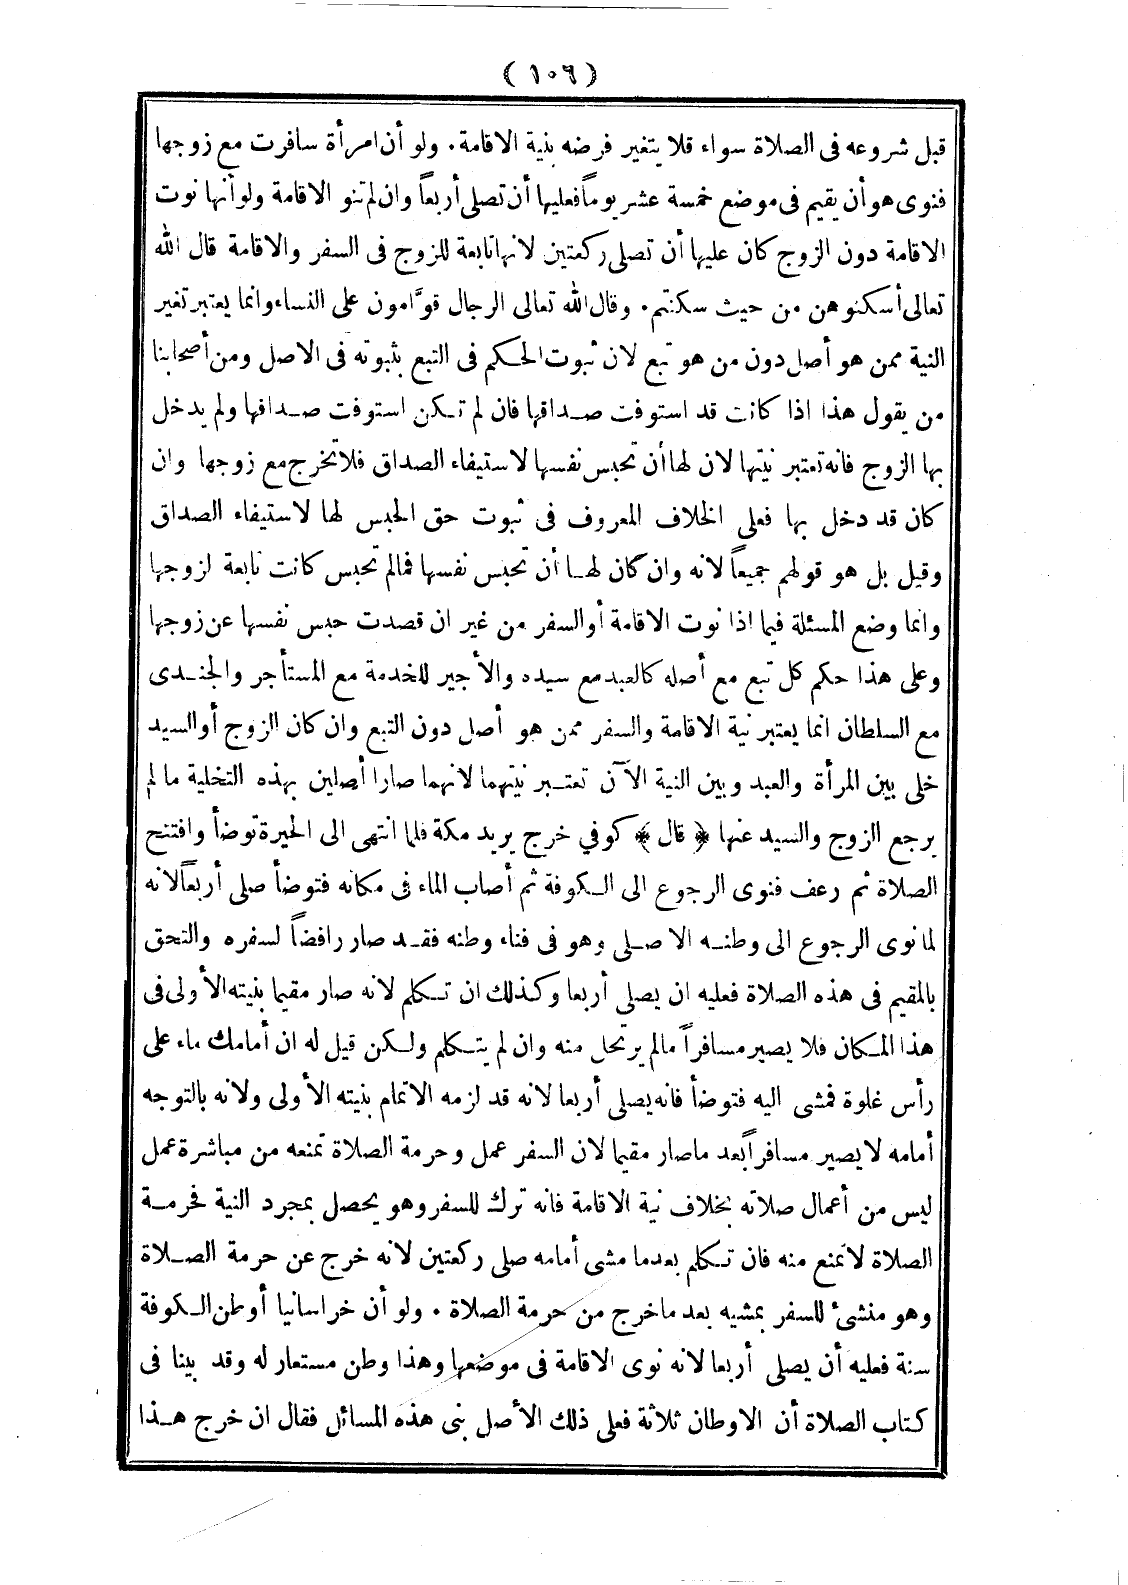 (١٠٦)
قبل شروعه فى الصلاة سواء قلا يتغير فرضه بنية الاقامة. ولو أن امرأة سافرت مع زوجها
فنوى هو أن يقيم فى موضع خمسة عشر يوماً فعليها أن تصلى أربعاً وان لم تنو الاقامة ولو أنها نوت
الاقامة دون الزوج كان عليها أن تصلى ركعتين لانها تابعة للزوج فى السفر والاقامة قال الله
تعالى أسكنوهن من حيث سكنتم. وقال الله تعالى الرجال قوّامون على النساء وانما يعتبر تغير
النية ممن هو أصل دون من هو تبع لان ثبوت الحكم فى التبع بثبوته فى الاصل ومن أصحابنا
من يقول هذا اذا كانت قد استوفت صداقها فان لم تكن استوفت صداقها ولم يدخل
بها الزوج فانه تعتبر نيتها لان لها أن تحبس نفسها لاستيفاء الصداق فلا تخرج مع زوجها وان
كان قد دخل بها فعلى الخلاف المعروف فى ثبوت حق الحبس لها لاستيفاء الصداق
وقيل بل هو قولهم جميعاً لانه وان كان لها أن تحبس نفسها فمالم تحبس كانت تابعة لزوجها
وانما وضع المسئلة فيما اذا نوت الاقامة أو السفر من غير ان قصدت حبس نفسها عن زوجها
وعلى هذا حكم كل تبع مع أصله كالعبد مع سيده والأجير للخدمة مع المستأجر والجندى
مع السلطان انما يعتبر نية الاقامة والسفر ممن هو أصل دون التبع وان كان الزوج أو السيد
خلى بين المرأة والعبد وبين النية الآن تعتبر نيتهما لانهما صارا أصلين بهذه التخلية ما لم
يرجع الزوج والسيد عنها ﴿ قال ﴾ كوفي خرج يريد مكة فلما انتهى الى الحيرة توضأ وافتتح
الصلاة ثم رعف فنوى الرجوع الى الكوفة ثم أصاب الماء فى مكانه فتوضأ صلى أربعاً لانه
لما نوى الرجوع الى وطنه الاصلى وهو فى فناء وطنه فقد صار رافضاً لسفره والتحق
بالمقيم فى هذه الصلاة فعليه ان يصلى أربعا وكذلك ان تكلم لانه صار مقيما بنيته الأولى فى
هذا المكان فلا يصير مسافراً مالم يرتحل منه وان لم يتكلم ولكن قيل له ان أمامك ماء على
رأس غلوة فمشى اليه فتوضأ فانه يصلى أربعا لانه قد لزمه الاتمام بنيته الأولى ولانه بالتوجه
أمامه لا يصير مسافراً بعد ماصار مقيما لان السفر عمل وحرمة الصلاة تمنعه من مباشرة عمل
ليس من أعمال صلاته بخلاف نية الاقامة فانه ترك للسفر وهو يحصل بمجرد النية فحرمة
الصلاة لا تمنع منه فان تكلم بعدما مشى أمامه صلى ركعتين لانه خرج عن حرمة الصلاة
وهو منشئ للسفر بمشيه بعد ماخرج من حرمة الصلاة. ولو أن خراسانيا أوطن الكوفة
سنة فعليه أن يصلى أربعا لانه نوى الاقامة فى موضعها وهذا وطن مستعار له وقد بينا فى
كتاب الصلاة أن الاوطان ثلاثة فعلى ذلك الأصل بنى هذه المسائل فقال ان خرج هذا